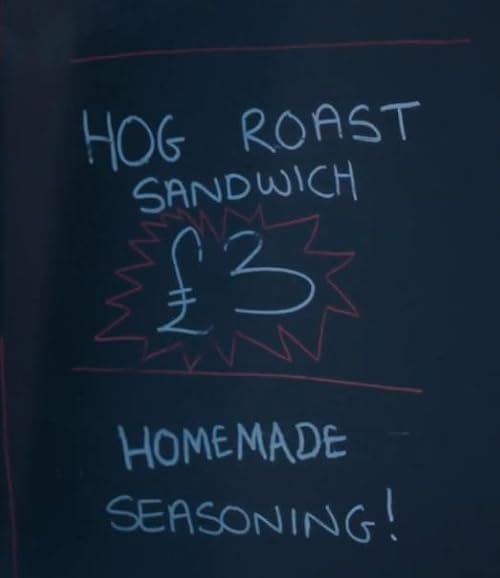 HOG ROAST
SANDWICH
£3
HOMEMADE
SEASONING!